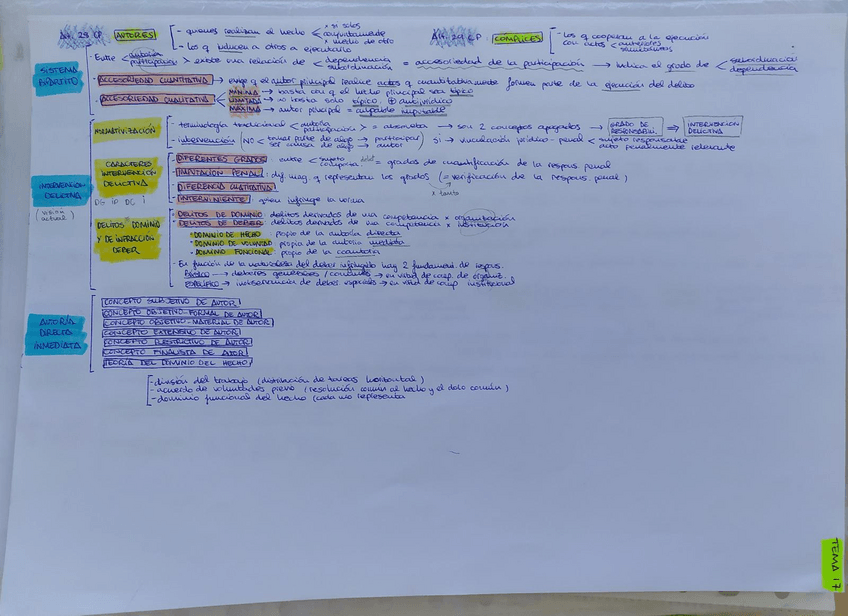 Art. 28 CP. AUTORES - quienes realizan el hecho < x sí solos
conjuntamente
x medio de otro
- los q inducen a otros a ejecutarlo
Art. 29 CP. CÓMPLICES - los q cooperan a la ejecución
con actos < anteriores
simultáneos
SISTEMA
BIPARTITO
- Entre < autoría
participación > existe una relación de < dependencia
subordinación = accesoriedad de la participación → indica el grado de < subordinación
dependencia
- ACCESORIEDAD CUANTITATIVA → exige q el autor principal realice actos q cuantitativamente formen parte de la ejecución del delito
- ACCESORIEDAD CUALITATIVA
MÍNIMA → basta con q el hecho principal sea típico
LIMITADA → no basta solo típico ⊕ antijurídico
MÁXIMA → autor principal = culpable imputable
INTERVENCIÓN
DELICTIVA
(visión
actual)
NORMATIVIZACIÓN
- terminología tradicional < autoría
participación > = obsoleta → son 2 conceptos apegados → GRADO DE
RESPONSABIL. ⇒ INTERVENCIÓN
DELICTIVA
- intervención NO < tomar parte de algo → participar
ser causa de algo → autor } SÍ → vinculación jurídico-penal < sujeto responsable
acto penalmente relevante
CARACTERES
INTERVENCIÓN
DELICTIVA
DG IP DC I
- DIFERENTES GRADOS: entre < sujeto
conducta = grados de cuantificación de la respons penal
- IMPUTACIÓN PENAL: (= verificación de la respons penal)
- DIFERENCIA CUANTITATIVA
x tanto
- INTERVINIENTE: quien infringe la norma
DELITOS DOMINIO
Y DE INFRACCIÓN
DEBER
- DELITOS DE DOMINIO: delitos derivados de una competencia x organización
- DELITOS DE DEBER: delitos derivados de una competencia x institución
• DOMINIO DE HECHO: propio de la autoría directa
• DOMINIO DE VOLUNTAD: propia de la autoría mediata
• DOMINIO FUNCIONAL: propio de la coautoría
- En función de la naturaleza del deber infringido hay 2 fundament. de respons.
→ deberes generales / comunes → en virtud de comp. de organiz.
→ inobservancia de deber especiales → en virtud de comp institucional
AUTORÍA
DIRECTA
INMEDIATA
CONCEPTO SUBJETIVO DE AUTOR
CONCEPTO OBJETIVO-FORMAL DE AUTOR
CONCEPTO OBJETIVO-MATERIAL DE AUTOR
CONCEPTO EXTENSIVO DE AUTOR
CONCEPTO RESTRICTIVO DE AUTOR
CONCEPTO FINALISTA DE AUTOR
TEORÍA DEL DOMINIO DEL HECHO
- división del trabajo (distribución de tareas horizontal)
- acuerdo de voluntades previo (resolución común al hecho y el dolo común)
- dominio funcional del hecho (cada uno representa
TEMA 17